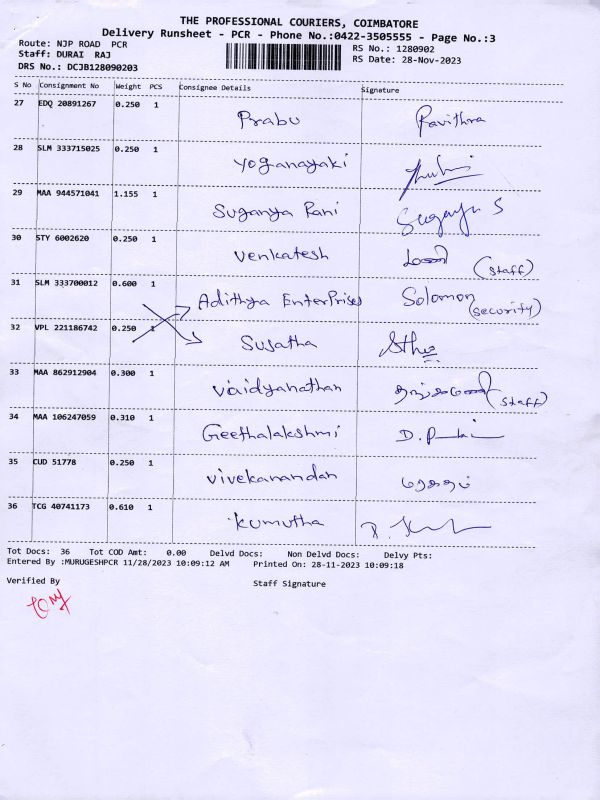 THE PROFESSIONAL COURIERS, COIMBATORE
Delivery Runsheet - PCR - Phone No.:0422-3505555 - Page No.:3
Route: NJP ROAD PCR RS No.: 1280902
Staff: DURAI RAJ RS Date: 28-Nov-2023
DRS No.: DCJB128090203
S No Consignment No Weight PCS Consignee Details Signature
27 EDQ 20891267 0.250 1 Prabu Pavithra
28 SLM 333715025 0.250 1 Yoganayaki
29 MAA 944571041 1.155 1 Suganya Rani Suganya S
30 STY 6002620 0.250 1 Venkatesh (staff)
31 SLM 333700012 0.600 1 Adithya Enterprises Solomon (security)
32 VPL 221186742 0.250 1 Sujatha
33 MAA 862912904 0.300 1 Vaidyanathan (staff)
34 MAA 106247059 0.310 1 Geethalakshmi
35 CUD 51778 0.250 1 Vivekanandan
36 TCG 40741173 0.610 1 Kumutha
Tot Docs: 36 Tot COD Amt: 0.00 Delvd Docs: Non Delvd Docs: Delvy Pts:
Entered By :MURUGESHPCR 11/28/2023 10:09:12 AM Printed On: 28-11-2023 10:09:18
Verified By Staff Signature